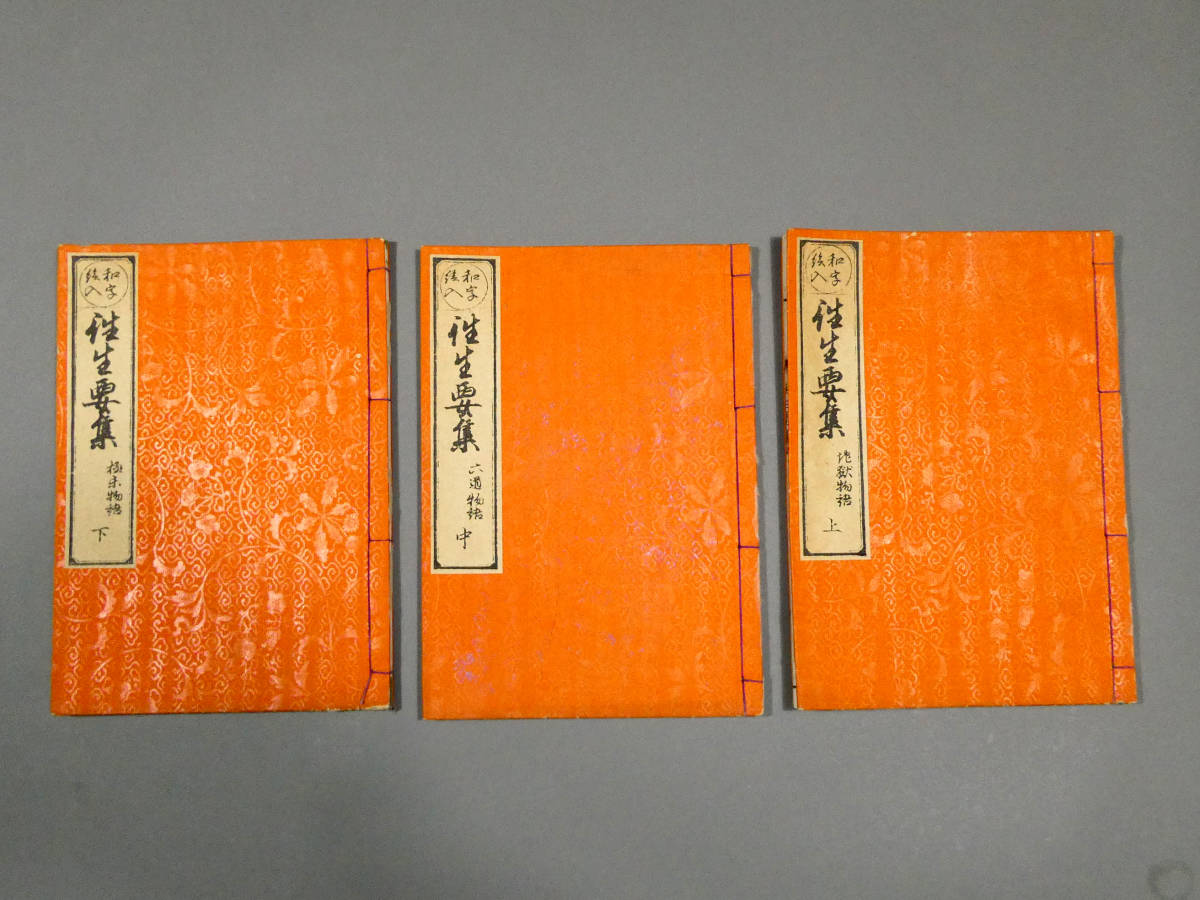 和字
絵入
往生要集
地獄物語
上
和字
絵入
往生要集
六道物語
中
和字
絵入
往生要集
極楽物語
下